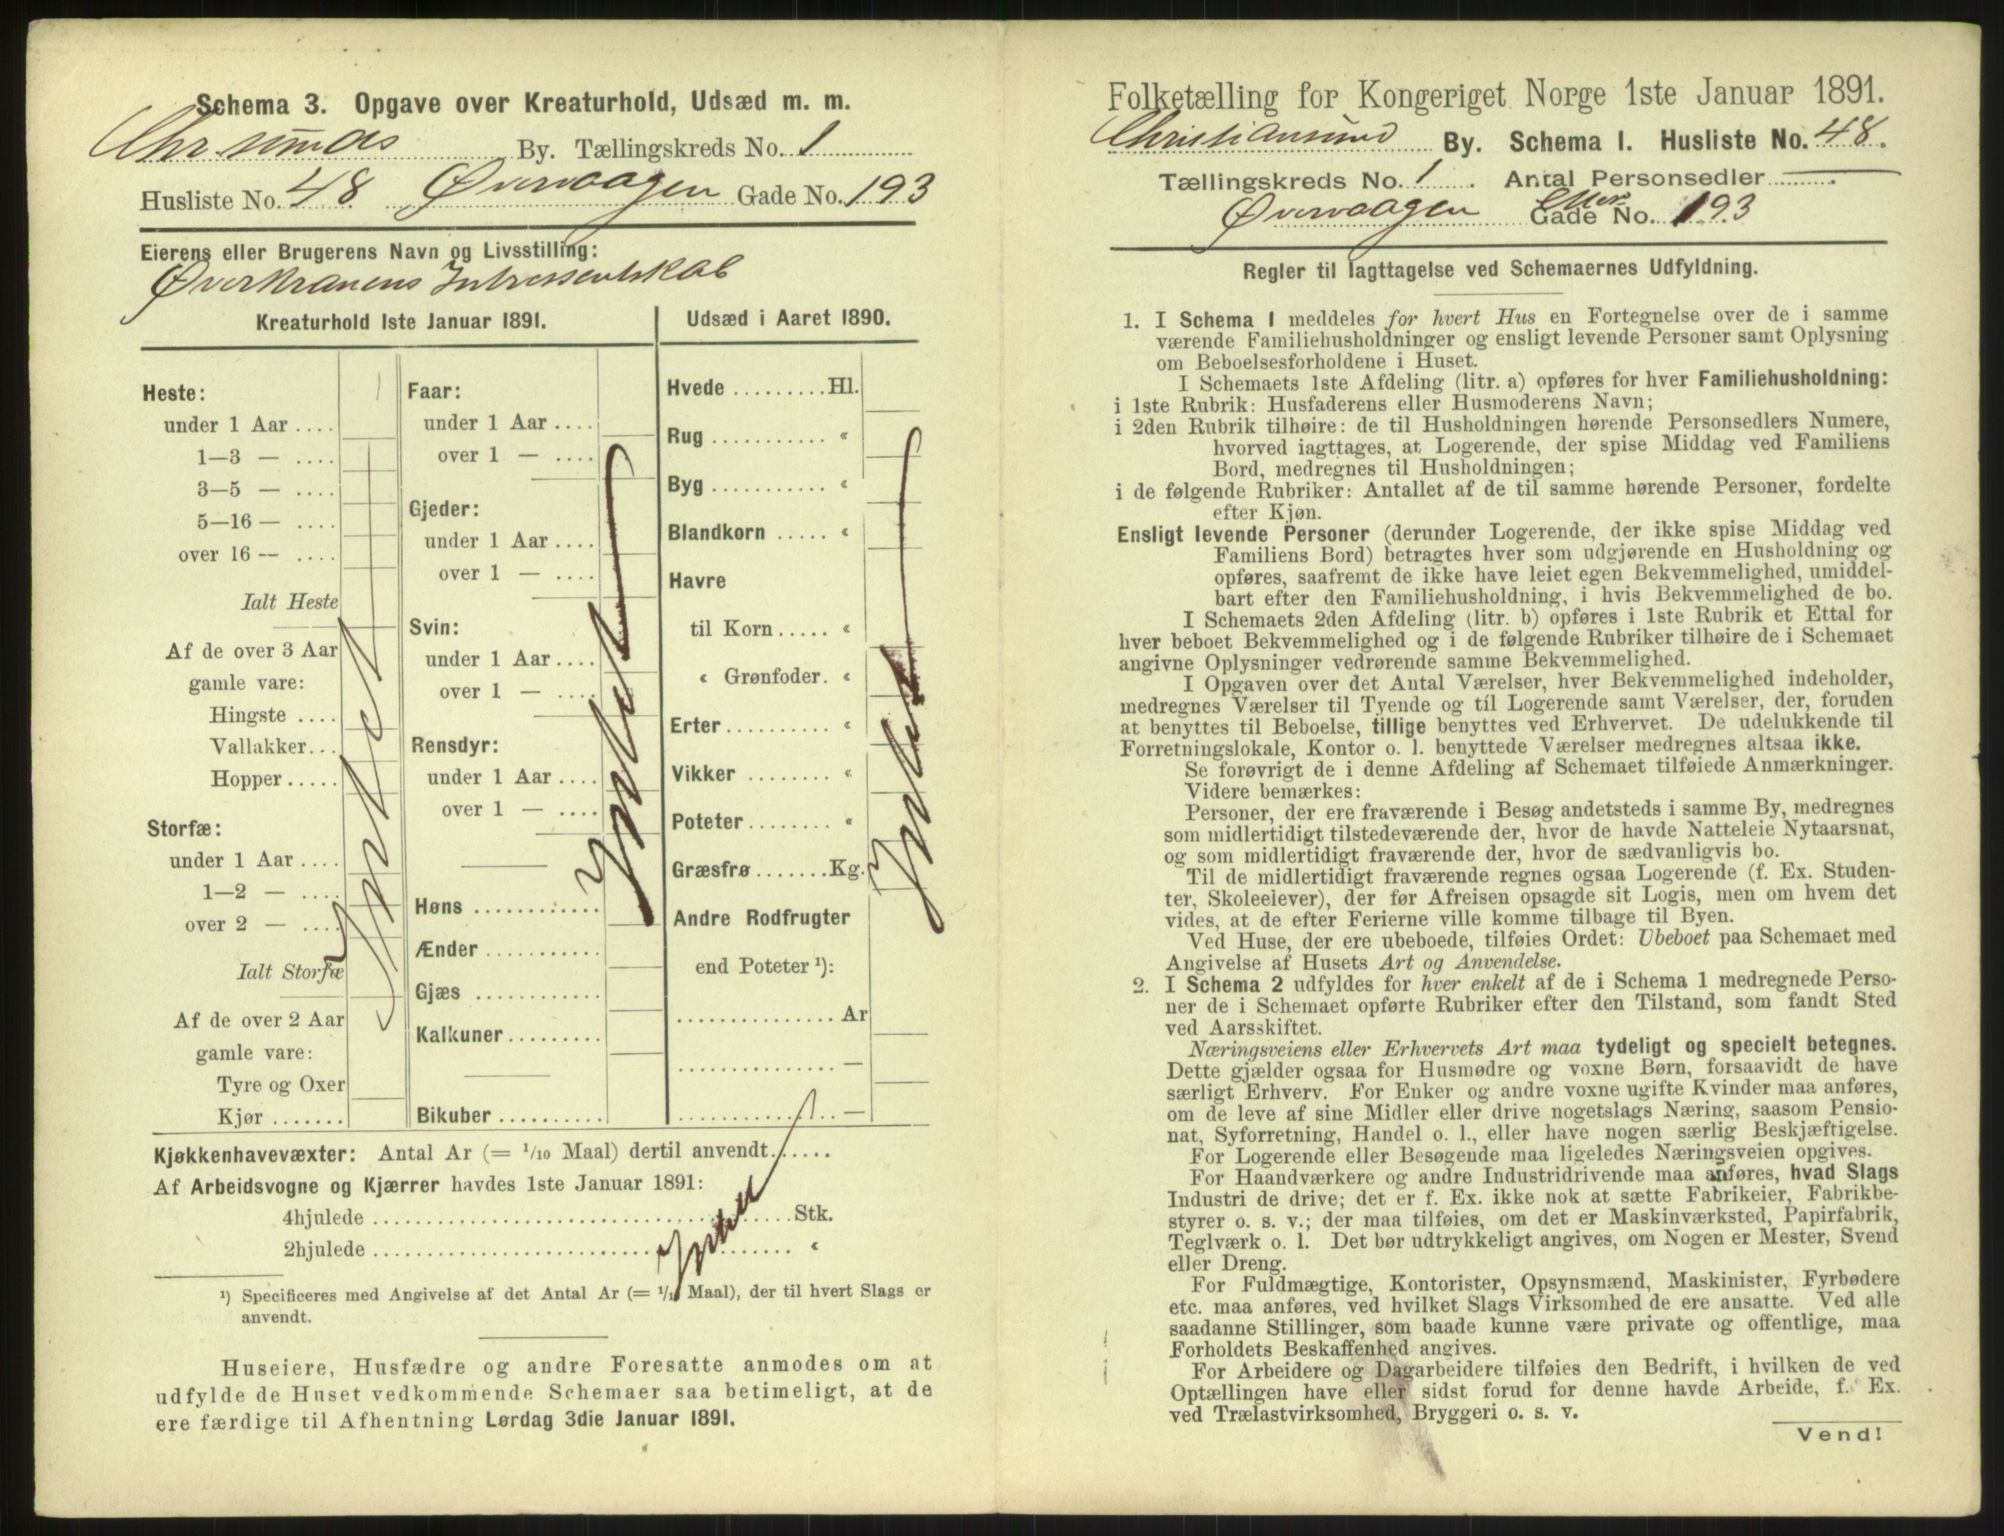 Schema 3. Opgave over Kreaturhold, Udsæd m. m.
Chrsunds By. Tællingskreds No. 1
Husliste No. 48 Øvervaagen Gade No. 193
Eierens eller Brugerens Navn og Livsstilling:
Øverkranens Intressentskab
Kreaturhold 1ste Januar 1891.
Heste:
under 1 Aar ....
1—3 — ....
3—5 — ....
5—16 — ....
over 16 — ....
Ialt Heste
Af de over 3 Aar
gamle vare:
Hingste ....
Vallakker...
Hopper.....
Storfæ:
under 1 Aar ....
1—2 — ....
over 2 — ....
Ialt Storfæ
Af de over 2 Aar
gamle vare:
Tyre og Oxer
Kjør .......
Intet
Faar:
under 1 Aar ....
over 1 — ....
Gjeder:
under 1 Aar ....
over 1 — ....
Svin:
under 1 Aar ....
over 1 — ....
Rensdyr:
under 1 Aar ....
over 1 — ....
Høns ............
Ænder ...........
Gjæs ............
Kalkuner.........
Bikuber..........
Intet
Udsæd i Aaret 1890.
Hvede .........Hl.
Rug ........... «
Byg ........... «
Blandkorn ..... «
Havre
til Korn..... «
« Grønfoder. «
Erter ......... «
Vikker ........ «
Poteter........ «
Græsfrø.......Kg.
Andre Rodfrugter
end Poteter ¹):
............... Ar
............... —
............... —
Intet
Kjøkkenhavevæxter: Antal Ar (= 1/10 Maal) dertil anvendt......
Af Arbeidsvogne og Kjærrer havdes 1ste Januar 1891:
4hjulede ........................................Stk.
2hjulede ........................................ «
Intet
¹) Specificeres med Angivelse af det Antal Ar (= 1/10 Maal), der til hvert Slags er
anvendt.
Huseiere, Husfædre og andre Foresatte anmodes om at
udfylde de Huset vedkommende Schemaer saa betimeligt, at de
ere færdige til Afhentning Lørdag 3die Januar 1891.
Folketælling for Kongeriget Norge 1ste Januar 1891.
Christiansund By. Schema I. Husliste No. 48.
Tællingskreds No. 1. Antal Personsedler —.
eller
Øvervaagen Gade No. 193
Regler til Iagttagelse ved Schemaernes Udfyldning.
1. I Schema 1 meddeles for hvert Hus en Fortegnelse over de i samme
værende Familiehusholdninger og ensligt levende Personer samt Oplysning
om Beboelsesforholdene i Huset.
I Schemaets 1ste Afdeling (litr. a) opføres for hver Familiehusholdning:
i 1ste Rubrik: Husfaderens eller Husmoderens Navn;
i 2den Rubrik tilhøire: de til Husholdningen hørende Personsedlers Numere,
hvorved iagttages, at Logerende, der spise Middag ved Familiens
Bord, medregnes til Husholdningen;
i de følgende Rubriker: Antallet af de til samme hørende Personer, fordelte
efter Kjøn.
Ensligt levende Personer (derunder Logerende, der ikke spise Middag ved
Familiens Bord) betragtes hver som udgjørende en Husholdning og
opføres, saafremt de ikke have leiet egen Bekvemmelighed, umiddel-
bart efter den Familiehusholdning, i hvis Bekvemmelighed de bo.
I Schemaets 2den Afdeling (litr. b) opføres i 1ste Rubrik et Ettal for
hver beboet Bekvemmelighed og i de følgende Rubriker tilhøire de i Schemaet
angivne Oplysninger vedrørende samme Bekvemmelighed.
I Opgaven over det Antal Værelser, hver Bekvemmelighed indeholder,
medregnes Værelser til Tyende og til Logerende samt Værelser, der, foruden
at benyttes til Beboelse, tillige benyttes ved Erhvervet. De udelukkende til
Forretningslokale, Kontor o. l. benyttede Værelser medregnes altsaa ikke.
Se forøvrigt de i denne Afdeling af Schemaet tilføiede Anmærkninger.
Videre bemærkes:
Personer, der ere fraværende i Besøg andetsteds i samme By, medregnes
som midlertidigt tilstedeværende der, hvor de havde Natteleie Nytaarsnat,
og som midlertidigt fraværende der, hvor de sædvanligvis bo.
Til de midlertidigt fraværende regnes ogsaa Logerende (f. Ex. Studen-
ter, Skoleelever), der før Afreisen opsagde sit Logis, men om hvem det
vides, at de efter Ferierne ville komme tilbage til Byen.
Ved Huse, der ere ubeboede, tilføies Ordet: Ubeboet paa Schemaet med
Angivelse af Husets Art og Anvendelse.
2. I Schema 2 udfyldes for hver enkelt af de i Schema 1 medregnede Perso-
ner de i Schemaet opførte Rubriker efter den Tilstand, som fandt Sted
ved Aarsskiftet.
Næringsveiens eller Erhvervets Art maa tydeligt og specielt betegnes.
Dette gjælder ogsaa for Husmødre og voxne Børn, forsaavidt de have
særligt Erhverv. For Enker og andre voxne ugifte Kvinder maa anføres,
om de leve af sine Midler eller drive nogetslags Næring, saasom Pensio-
nat, Syforretning, Handel o. l., eller have nogen særlig Beskjæftigelse.
For Logerende eller Besøgende maa ligeledes Næringsveien opgives.
For Haandværkere og andre Industridrivende maa anføres, hvad Slags
Industri de drive; det er f. Ex. ikke nok at sætte Fabrikeier, Fabrikbe-
styrer o. s. v.; der maa tilføies, om det er Maskinværksted, Papirfabrik,
Teglværk o. l. Det bør udtrykkeligt angives, om Nogen er Mester, Svend
eller Dreng.
For Fuldmægtige, Kontorister, Opsynsmænd, Maskinister, Fyrbødere
etc. maa anføres, ved hvilket Slags Virksomhed de ere ansatte. Ved alle
saadanne Stillinger, som baade kunne være private og offentlige, maa
Forholdets Beskaffenhed angives.
For Arbeidere og Dagarbeidere tilføies den Bedrift, i hvilken de ved
Optællingen have eller sidst forud for denne havde Arbeide, f. Ex.
ved Trælastvirksomhed, Bryggeri o. s. v.
Vend!